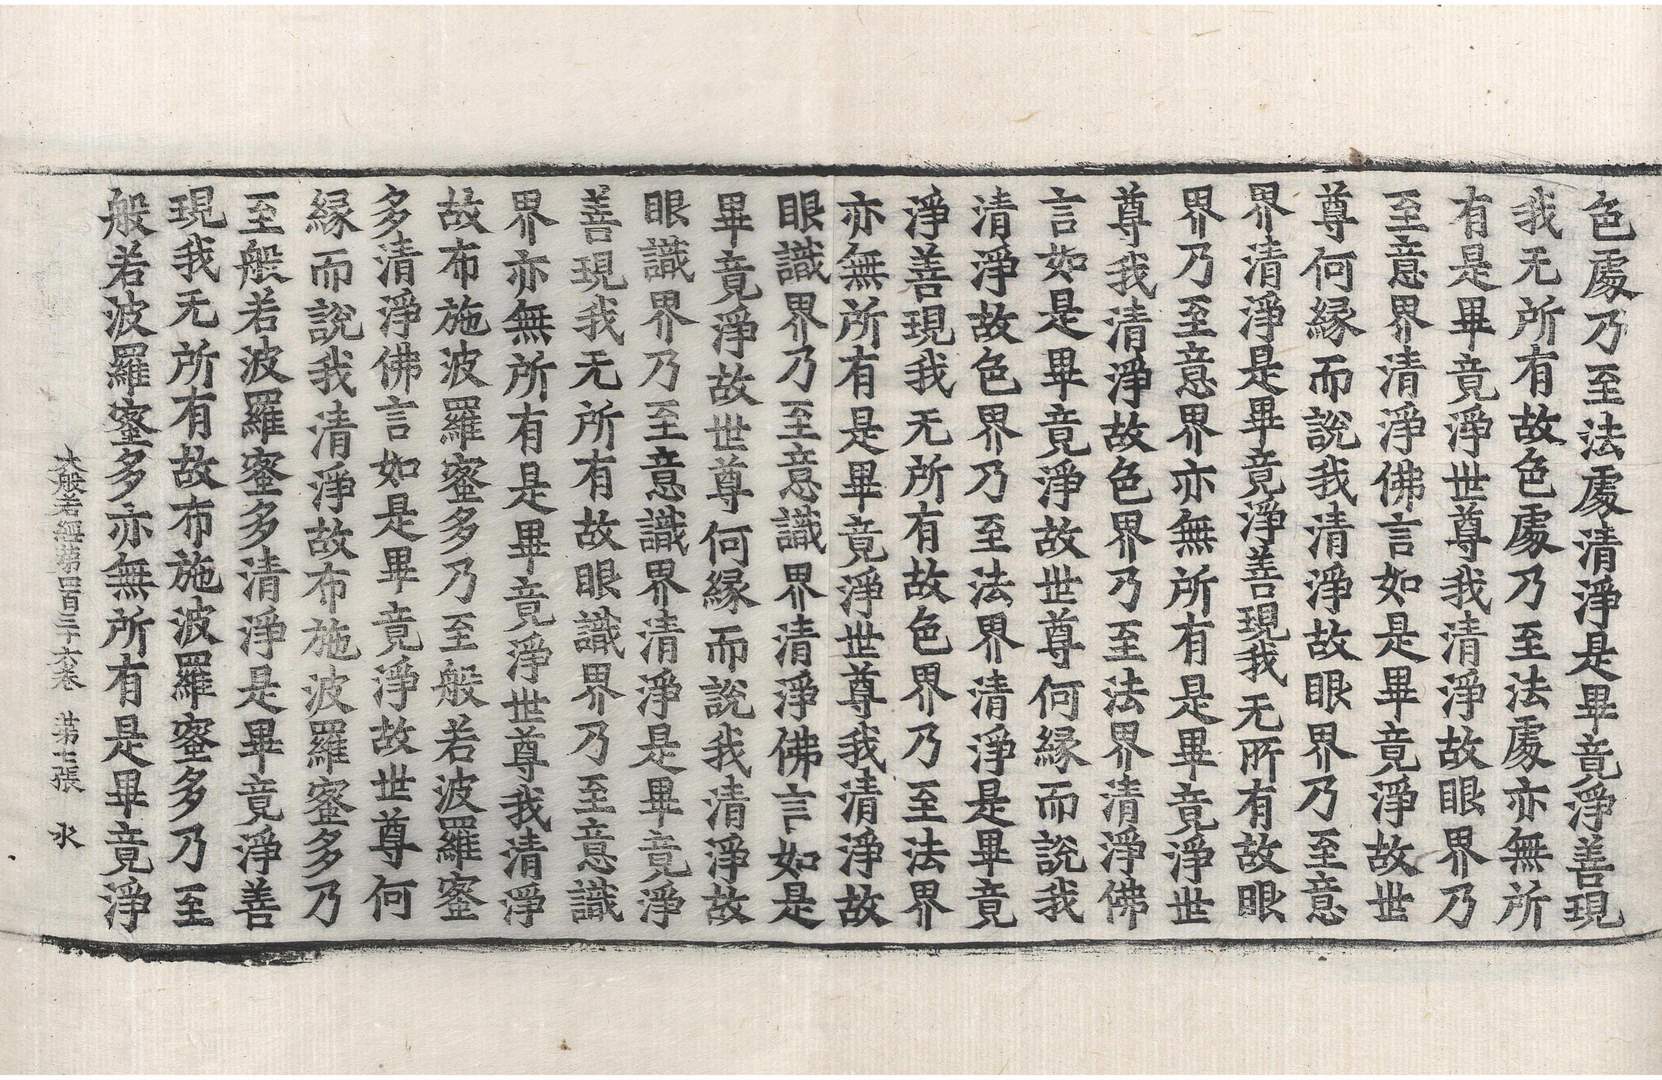 色處乃至法處清淨是畢竟淨善現
我无所有故色處乃至法處亦無所
有是畢竟淨世尊我清淨故眼界乃
至意界清淨佛言如是畢竟淨故世
尊何縁而說我清淨故眼界乃至意
界清淨是畢竟淨善現我无所有故眼
界乃至意界亦無所有是畢竟淨世
尊我清淨故色界乃至法界清淨佛
言如是畢竟淨故世尊何縁而說我
清淨故色界乃至法界清淨是畢竟
淨善現我无所有故色界乃至法界
亦無所有是畢竟淨世尊我清淨故
眼識界乃至意識界清淨佛言如是
畢竟淨故世尊何縁而說我清淨故
眼識界乃至意識界清淨是畢竟淨
善現我无所有故眼識界乃至意識
界亦無所有是畢竟淨世尊我清淨
故布施波羅蜜多乃至般若波羅蜜
多清淨佛言如是畢竟淨故世尊何
縁而說我清淨故布施波羅蜜多乃
至般若波羅蜜多清淨是畢竟淨善
現我无所有故布施波羅蜜多乃至
般若波羅蜜多亦無所有是畢竟淨
大般若經第四百三十六卷 第七張 水